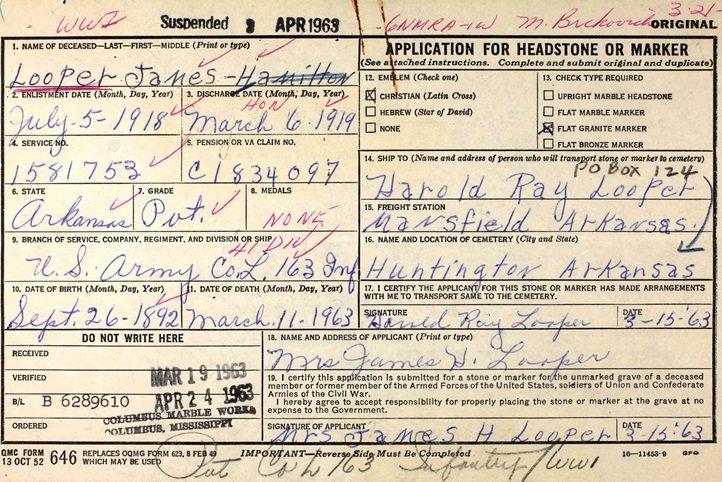 WWI Suspended 2 APR 1963 6NMRA-IW M. 3-21- ORIGINAL
1. NAME OF DECEASED—LAST—FIRST—MIDDLE (Print or type)
Looper James - Hamilton
2. ENLISTMENT DATE (Month, Day, Year)
July-5-1918
3. DISCHARGE DATE (Month, Day, Year)
HON
March 6 1919
4. SERVICE NO.
1581753
5. PENSION OR VA CLAIM NO.
C1834097
6. STATE
Arkansas
7. GRADE
Pvt.
8. MEDALS
NONE
9. BRANCH OF SERVICE, COMPANY, REGIMENT, AND DIVISION OR SHIP
41 DIV
U.S. Army Co L. 163 Inf
10. DATE OF BIRTH (Month, Day, Year)
Sept. 26-1892
11. DATE OF DEATH (Month, Day, Year)
March.11-1963
DO NOT WRITE HERE
RECEIVED
VERIFIED
MAR 19 1963
B/L B 6289610
APR 24 1963
COLUMBUS MARBLE WORKS
COLUMBUS, MISSISSIPPI
ORDERED
APPLICATION FOR HEADSTONE OR MARKER
(See attached instructions. Complete and submit original and duplicate)
12. EMBLEM (Check one)
X CHRISTIAN (Latin Cross)
HEBREW (Star of David)
NONE
13. CHECK TYPE REQUIRED
UPRIGHT MARBLE HEADSTONE
FLAT MARBLE MARKER
X FLAT GRANITE MARKER
FLAT BRONZE MARKER
14. SHIP TO (Name and address of person who will transport stone or marker to cemetery)
PO BOX 124
Harold Ray Looper
15. FREIGHT STATION
Mansfield Arkansas.
16. NAME AND LOCATION OF CEMETERY (City and State)
Huntington Arkansas
17. I CERTIFY THE APPLICANT FOR THIS STONE OR MARKER HAS MADE ARRANGEMENTS
WITH ME TO TRANSPORT SAME TO THE CEMETERY.
SIGNATURE
Harold Ray Looper
DATE
3-15-'63
18. NAME AND ADDRESS OF APPLICANT (Print or type)
Mrs James H. Looper
19. I certify this application is submitted for a stone or marker for the unmarked grave of a deceased
member or former member of the Armed Forces of the United States, soldiers of Union and Confederate
Armies of the Civil War.
I hereby agree to accept responsibility for properly placing the stone or marker at the grave at no
expense to the Government.
SIGNATURE OF APPLICANT
Mrs James H Looper
DATE
3-15-'63
QMC FORM
13 OCT 52 646 REPLACES OQMG FORM 623, 8 FEB 49
WHICH MAY BE USED
IMPORTANT—Reverse Side Must Be Completed
16—11453-9 GPO
Pvt Co L 163 Infantry WW1